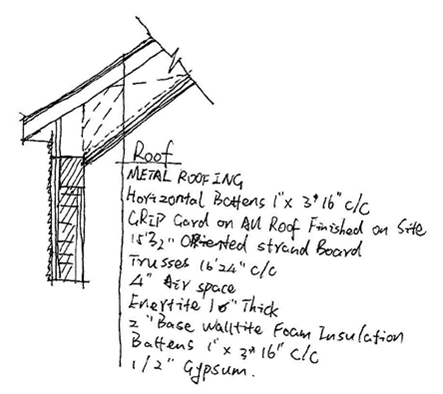 Roof
METAL ROOFING
Horizontal Battens 1" x 3" 16" c/c
GRIP Gard on All Roof Finished on Site
15'32" Oriented strand Board
Trusses 16'24" c/c
4" Air space
Enertite 16" Thick
2 "Base Walltite Foam Insulation
Battens 1" x 3" 16" c/c
1/2" Gypsum.